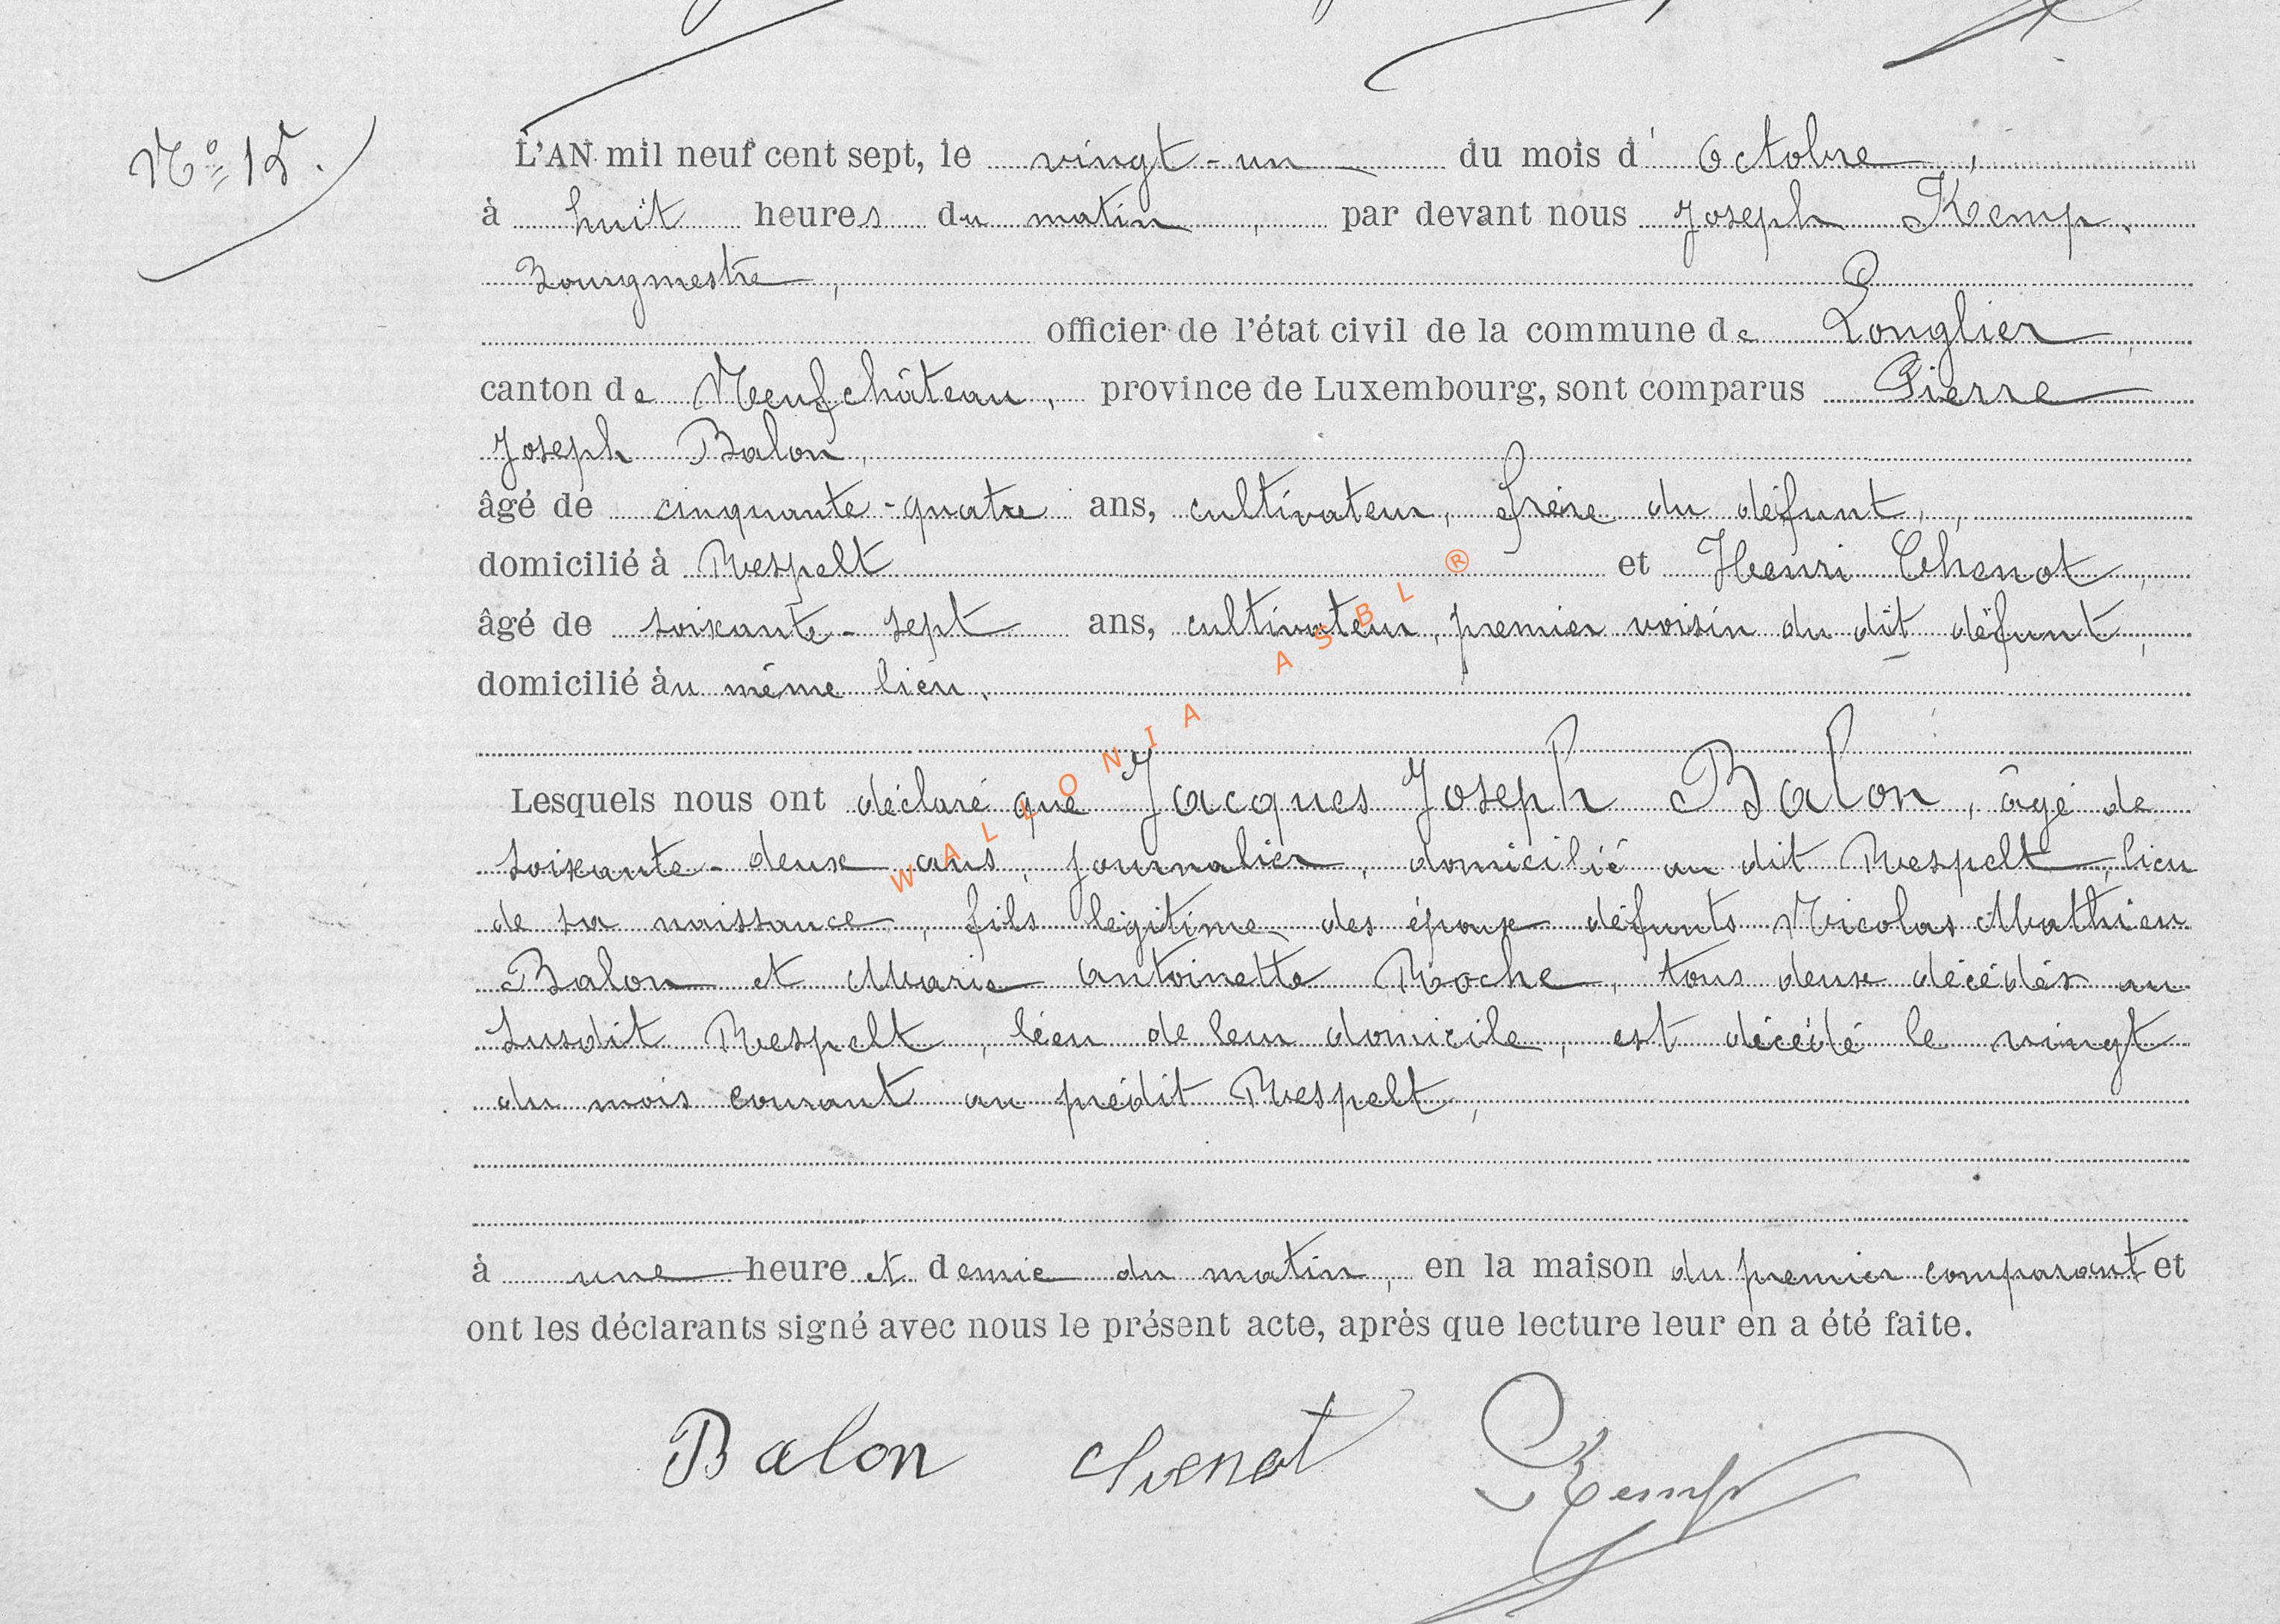 Nº 15.
L'AN mil neuf cent sept, le vingt-un du mois d' Octobre,
à huit heures du matin, par devant nous Joseph Kemp,
Bourgmestre,
officier de l'état civil de la commune de Longlier,
canton de Neufchâteau, province de Luxembourg, sont comparus Pierre
Joseph Balon,
âgé de cinquante-quatre ans, cultivateur, frère du défunt,,
domicilié à Respelt et Henri Chenot,
âgé de soixante-sept ans, cultivateur, premier voisin du dit défunt,
domicilié àu même lieu.
Lesquels nous ont déclaré que Jacques Joseph Balon, âgé de
soixante-deux ans, journalier, domicilié au dit Respelt, lieu
de sa naissance, fils légitime des époux défunts Nicolas Mathieu
Balon et Marie Antoinette Roche, tous deux décédés au
susdit Respelt, lieu de leur domicile, est décédé le vingt
du mois courant au prédit Respelt,
à une heure et demie du matin, en la maison du premier comparant et
ont les déclarants signé avec nous le présent acte, après que lecture leur en a été faite.
Balon Chenot Kemp
WALLONIA ASBL ®